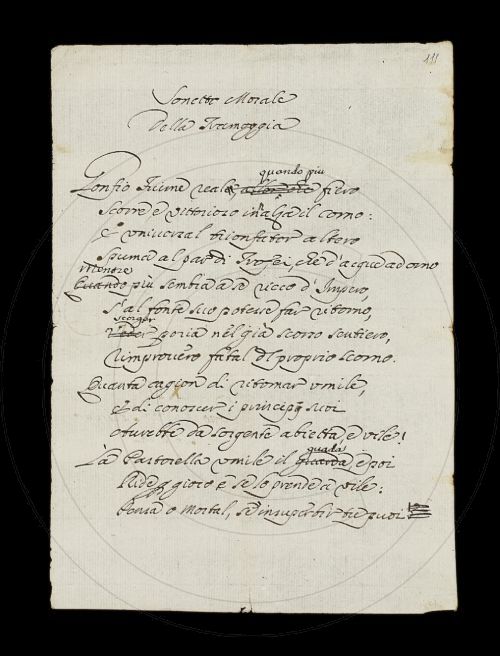 111
Sonetto Morale
Della Tramoggia
quando più
Gonfio Fiume real, fiero
Scorre e vittorioso inalza il corno:
E universal trionfator altero
Spuma al par di Trofei, che d'acque adorno
mentre
Quando più sembra a se ricco d'Impero,
S'al fonte suo potesse far ritorno,
scorger
Veder poria nel già scorso sentiero,
L'improvero fatal del proprio scorno.
Quanta cagion di ritornar umile,
E di conoscer i principij suoi
Avrebbe da sorgente abietta, e vile!
guada
La Pastorella umile il guarda, e poi
Ride, e se lo prende a vile:
Pensa o Mortal, se insuperbir tu puoi